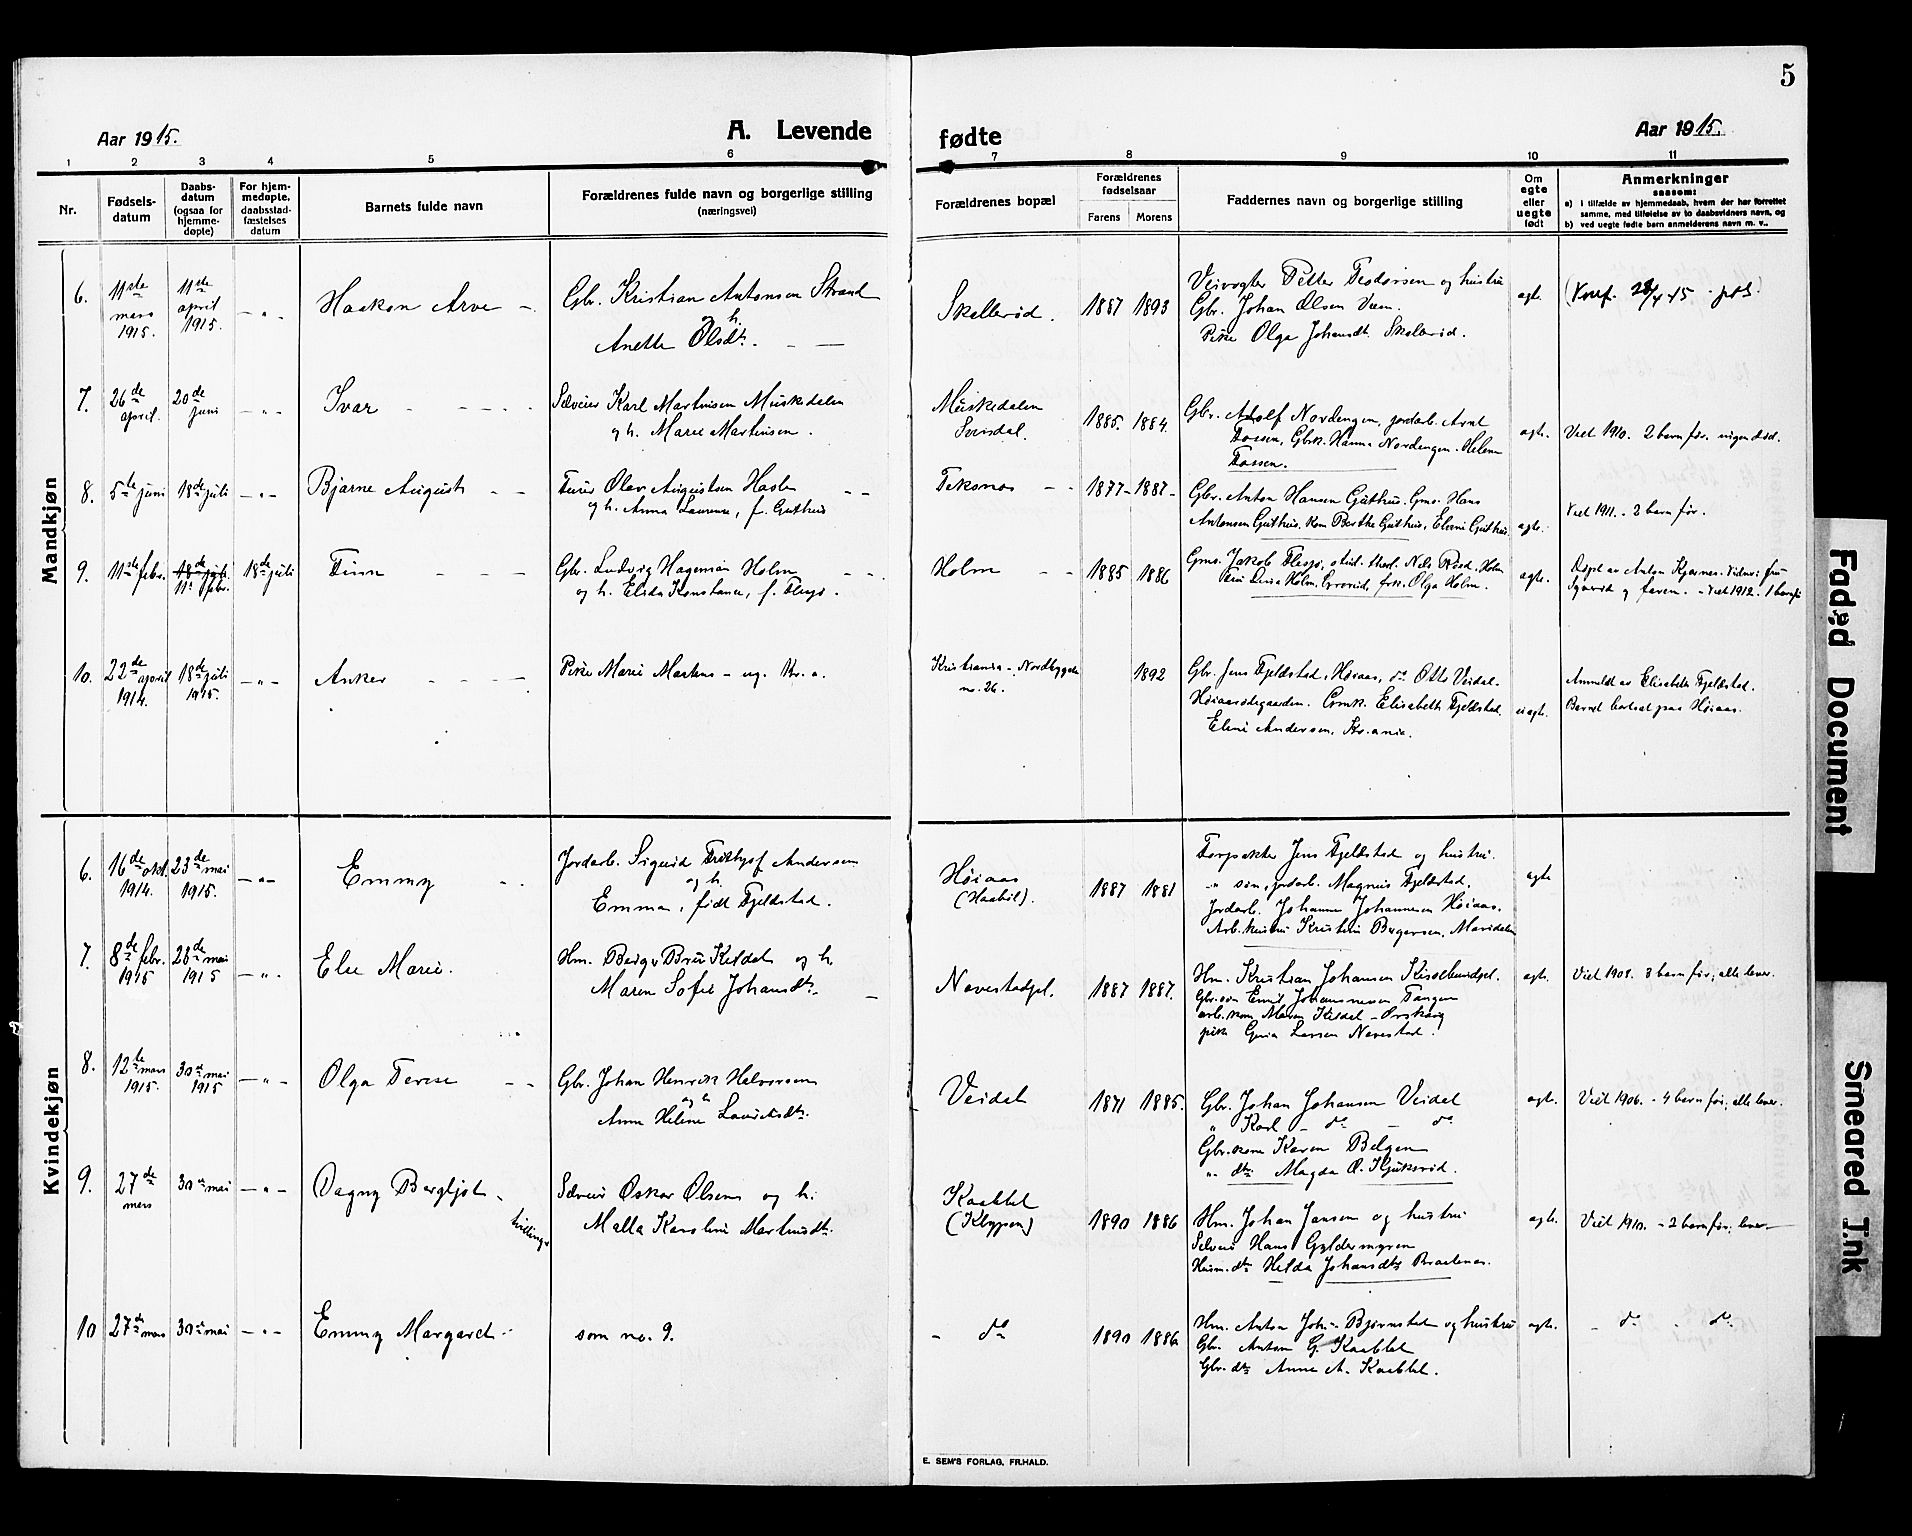 5
Aar 1915. A. Levende fødte Aar 1915.
1 2 3 4 5 6 7 8 9 10 11
Nr.
Fødsels-
datum
Daabs-
datum
(ogsaa for
hjemme-
døpte)
For hjem-
medøpte,
daabsstad-
fæstelses
datum
Barnets fulde navn
Forældrenes fulde navn og borgerlige stilling
(næringsvei)
Forældrenes bopæl
Forældrenes
fødselsaar
Farens Morens
Faddernes navn og borgerlige stilling
Om
egte
eller
uegte
født
Anmerkninger
saasom:
a) i tilfælde av hjemmedaab, hvem der har forrettet
samme, med tilføielse av to daabsvidners navn, og
b) ved uegte fødte barn anmelderens navn m. v..
Mandkjøn
6.
11te
mars
1915.
11te
april
1915.
- " -
Haakon Arve -
Gbr. Kristian Antonsen Strand
h.
Anette Olsdtr. - -
Skellerød.
1887 1893
Veivogter Petter Teodorsen og hustru
Gbr. Johan Olsen Veen.
Pike Olga Johansdt. Skellerød.
egt.
7.
26de
april.
20de
juni
- " -
Ivar - - - -
Sæveier Karl Martinsen Muskedalen
og h. Marie Martinsen.
Muskedalen
1885. 1884.
Gbr. Adolf Nordengen, jordarb. Arnt
Fossen, Gbrk. Hanna Nordengen. Helene
Fossen.
egt.
Viet 1910. 2 barn før. ingen død.
8.
5te juni
18de juli
- " -
Bjarne August - -
Olav Augustsen Haslen
og h. Anna Laurense, f. Guthus
Teksnes - -
1877- 1887-
Gbr. Anton Hansen Guthus. Gms. Hans
Antonsen Guthus. kone Berthe Guthus, Elvine Guthus.
egt.
Viet 1911. - 2 barn før.
9.
11te febr.
18de juli
11te febr.
18de juli
Finn - - -
Gbr. Ludvig Hageman Holm - -
og h. Elida Konstance, f. Flesjø.
Holm - -
1885 1886
Gms. Jakob Flesjø, stud. theol. Nils Rosd. Holm
Olga Holm.
egt.
Døpt av Anton Kjærnes. Vidner: fru
og faren. - Viet 1912. 1 barn før
10.
22de april
1914.
18de juli
1915.
- " -
Anker - - - -
Pike Marie Martens - ug. Kr.a.
Kristiania - Nordbygata
no. 26.
1892
Gbr. Jens Fjeldstad, Høiaas, do Otto Veidal.
Høiaasødegaarden. Gmk. Elisabeth Fjeldstad.
Eline Andersen, Kr.ania.
uegt.
Anmeldt av Elisabeth Fjeldstad.
Barnet bortsat paa Høiaas.
Kvindekjøn
6.
16de okt.
1914.
23de mai
1915.
- " -
Emmy - -
Jordarb. Sigurd Fridtjof Andersen
og h.
Emma, født Fjeldstad.
Høiaas
(Haabøl).
1887 1881
Forpakter Jens Fjeldstad og hustru.
-"- søn, jordarb. Magnus Fjeldstad.
Jordarb. Johannes Johannesen Høiaas.
Arb. hustru Kristine Birgersen, Maridalen
egt.
7.
8de febr.
1915
23de mai
1915
- " -
Else Marie.
Hm. Birger Brui Kildal og h.
Maren Sofie Johansdtr. -
Navestadpl.
1887 1887.
Hm. Kristian Johansen
Gbr. søn Emil Johannessen Tangen
arb. kone Maren Kildal -
pike Larsen Navestad.
egt.
Viet 1908. 3 barn før, alle lever.
8.
12te mars
1915.
30te mai
1915
- " -
Olga Terese - -
Gbr. Johan Henrik Halvorsen
og h
Anna Helene Lauritsdtr.
Veidal
1871 1885.
Gbr. Johan Johansen Veidal
" Karl - do - do
Gbr. kone Karen Belgen
" dtr. Magda O. Kjuksrød.
egt.
Viet 1906. - 4 barn før, alle lever.
9.
27de
mars
30te mai
- " -
Dagny Bergljot -
tvillinger
Sæveier Oskar Olsen og h.
Malla Karoline Martinsdtr.
Kaablel
(Kleppen)
1890 1886
Hm. Johan Jansen og hustru
Selveier Hans Gyldermyren
Husm. dtr. Helda Johansdtr Braatenes.
egt.
Viet 1910. - 2 barn før, lever
10
27de mars
30te mai
- " -
Emmy Margaret -
som no. 9.
- do
1890 1886
Hm. Anton Joh. Bjørnstad og hustru
Gbr. Anton G. Kaablel
Gbr. dtr. Anne A. Kaablel.
egt.
- do - do
E. SEM'S FORLAG, FR.HALD.
Faded Document
Smeared Ink